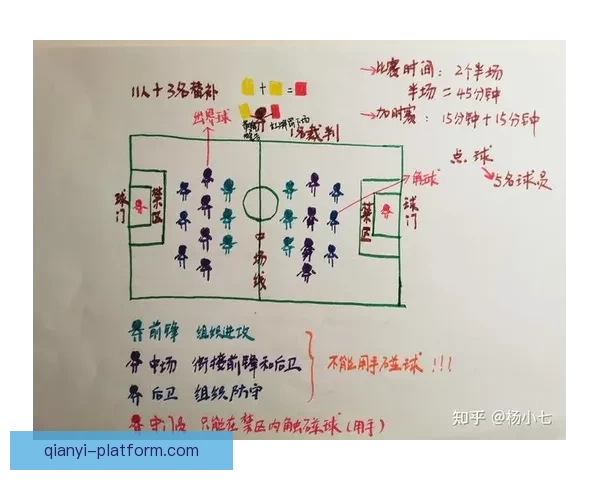 11人+3名替补
+ = 
→比赛时间：2个半场
半场=45分钟
→加时赛：15分钟+15分钟
点球
→5名球员
出界球
1名裁判
角球
球门
禁区
中场线
禁区
球门
前锋 组织进攻
中场 衔接前锋和后卫
后卫 组织防守
不能用手碰球!!!
守门员 只能在禁区内触碰球(用手)
知乎 @杨小七
qianyi-platform.com